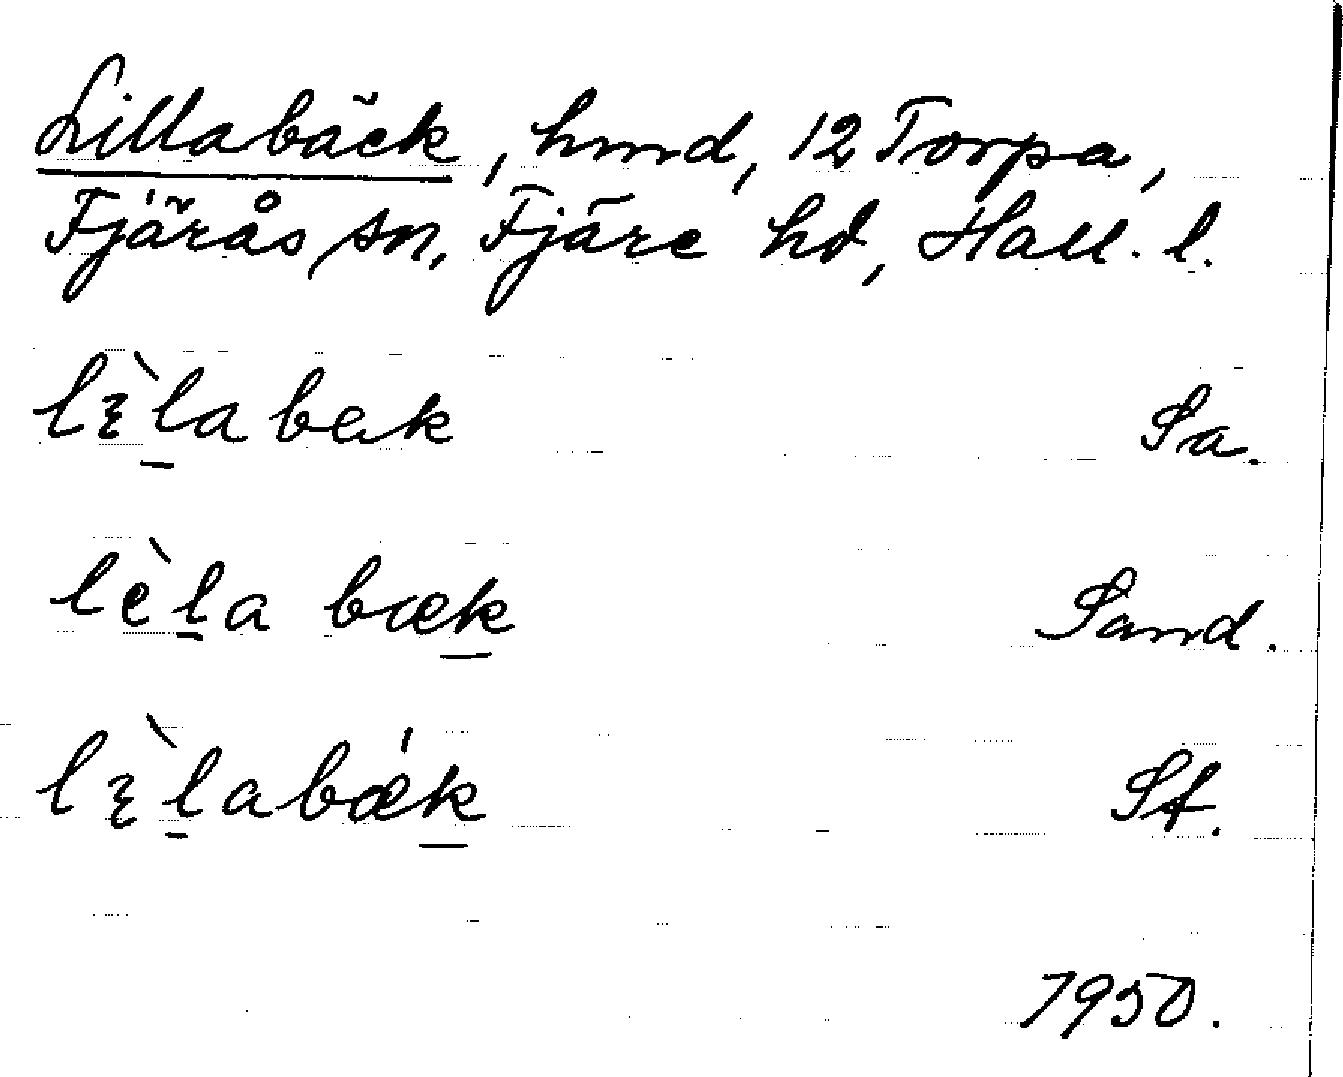 Lillabäck, hmd, 12 Torpa,
Fjärås sn, Fjäre hd, Hall. l.
lɛ̀la bæk Sa.
lèḻa bæḵ Sand.
lɛ̀ḻabǽḵ Sf.
1950.